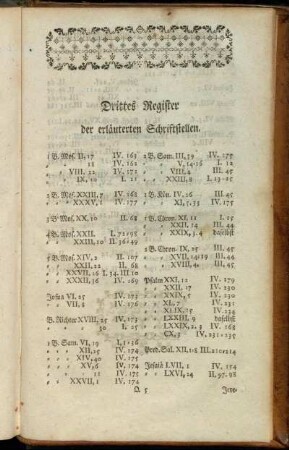 Drittes Register
der erläuterten Schriftstellen.
1 B. Mos. II, 17 IV. 163
„ „ 18 IV. 162
„ „ VIII, 22 IV. 171
„ „ IX, 10 I. 11
2 B. Mos. XXIII, 7 IV. 168
„ „ XXXV, 1 IV. 177
3 B. Mos. XX, 10 II. 68
4 B. Mos. XXII.
„ „ XXIII, 10
5 B. Mos. IV, 2 II. 107
„ „ XXII, 22 II. 68
„ „ XXVII, 26
„ „ XXXII, 36
Josua VI, 25 IV. 173
„ „ VII, 1 IV. 176
B. Richter XVIII, 25 IV. 173
„ „ 30 I. 25
1 B. Sam. VI, 19
„ „ XII, 25 IV. 174
„ „ XIV, 40 IV. 175
„ „ XV, 6 IV. 174
„ „ 11 IV. 175
„ „ XXVII, 1 IV. 174
2 B. Sam. III, 39 IV. 177
„ „ V, 14-16 I. 12
„ „ VIII, 4 III. 45
„ „ XXIII, 8
1 B. Kön. IV, 26 III. 45
„ „ XI, 5. 33 IV. 175
1 B. Chron. XI, 11 I. 15
„ „ XXII, 14 III. 44
„ „ XXIX, 3. 4 daselbst
2 B. Chron. IX, 25 III. 45
„ „ XVII, 14-19 III. 46
„ „ XVIII, 4 III. 45
Psalm XXI, 12 IV. 179
„ „ XXII, 17 IV. 230
„ „ XXIX, 5 IV. 231
„ „ XL, 7 IV. 231
„ „ XLIX, 15 IV. 234
„ „ LXXIII, 9 daselbst
„ „ LXXIX, 2. 3 IV. 168
„ „ CX, 3 IV. 235
Pred. Sal. XII, 1-8
Jesaiä LVII, 1 IV. 154
„ „ LXVI, 24 II. 97. 98
Q 5 Jere-